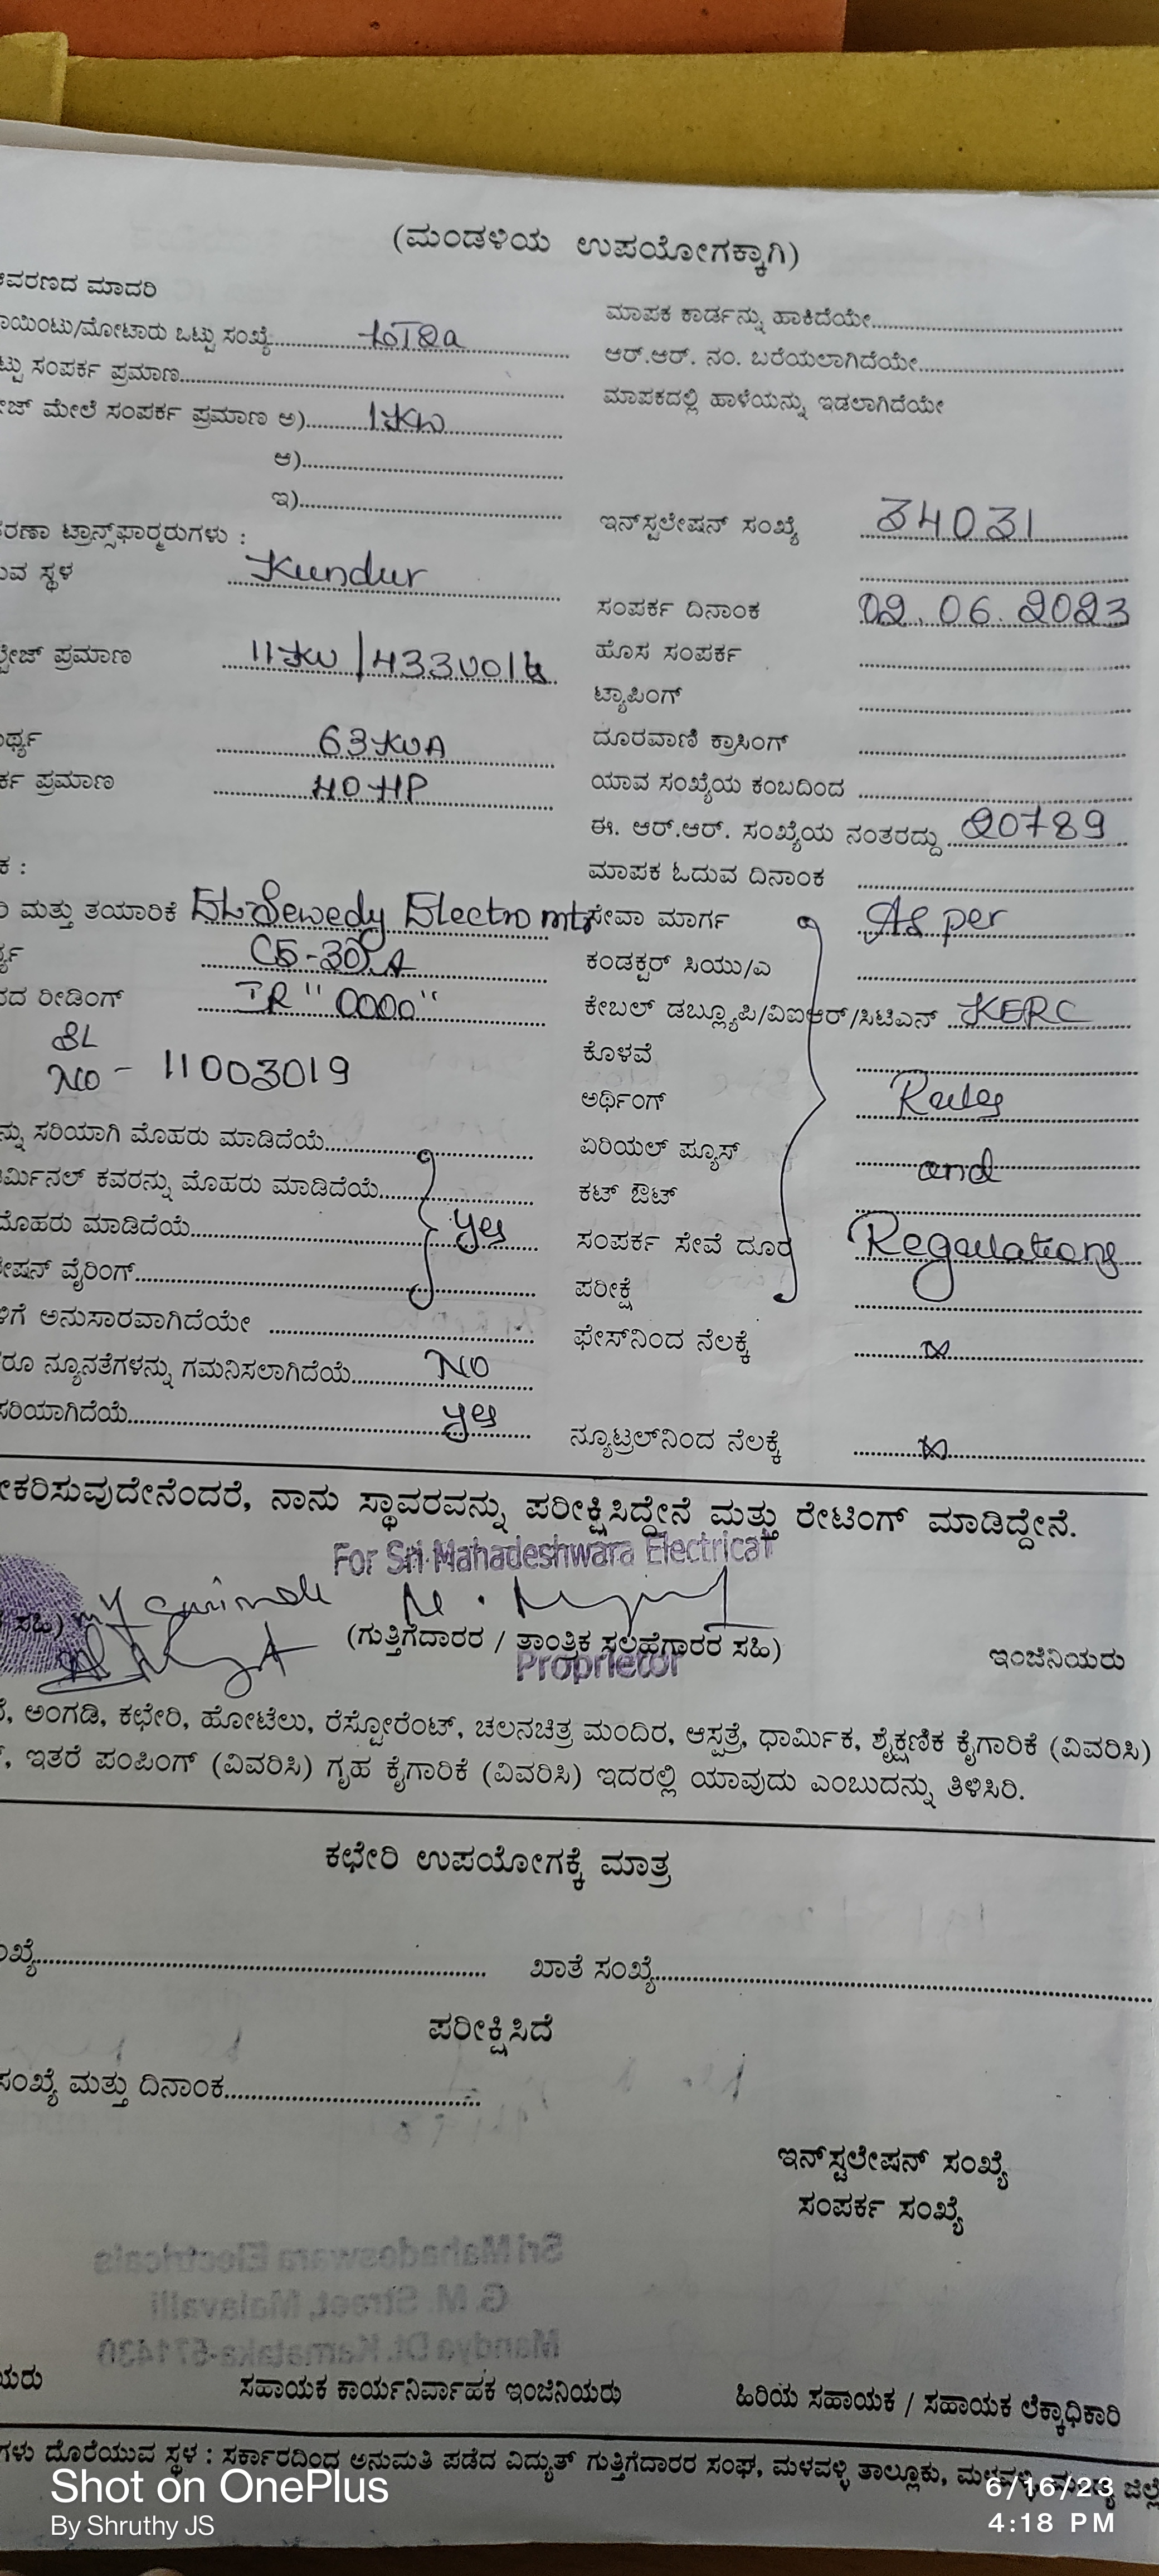 (ಮಂಡಳಿಯ ಉಪಯೋಗಕ್ಕಾಗಿ)
ಆವರಣದ ಮಾದರಿ
ಮಾಪಕ ಕಾರ್ಡನ್ನು ಹಾಕಿದೆಯೇ
ಾಯಿಂಟು/ಮೋಟಾರು ಒಟ್ಟು ಸಂಖ್ಯೆ
ಆರ್.ಆರ್. ನಂ. ಬರೆಯಲಾಗಿದೆಯೇ
ಟ್ಟು ಸಂಪರ್ಕ ಪ್ರಮಾಣ
ಮಾಪಕದಲ್ಲಿ ಹಾಳೆಯನ್ನು ಇಡಲಾಗಿದೆಯೇ
ೇಜ್ ಮೇಲೆ ಸಂಪರ್ಕ ಪ್ರಮಾಣ ಅ) 1KW
ಆ)
ಇ)
ಇನ್‌ಸ್ಟಲೇಷನ್ ಸಂಖ್ಯೆ 34031
ರಣಾ ಟ್ರಾನ್ಸ್‌ಫಾರ್‍ಮರುಗಳು :
ುವ ಸ್ಥಳ Kundur
ಸಂಪರ್ಕ ದಿನಾಂಕ 02.06.2023
್ಟೇಜ್ ಪ್ರಮಾಣ 11KV/433Volt
ಹೊಸ ಸಂಪರ್ಕ
ಟ್ಯಾಪಿಂಗ್
ರ್ಥ್ಯ 63KVA
ದೂರವಾಣಿ ಕ್ರಾಸಿಂಗ್
ರ್ಕ ಪ್ರಮಾಣ 40HP
ಯಾವ ಸಂಖ್ಯೆಯ ಕಂಬದಿಂದ
ಈ. ಆರ್.ಆರ್. ಸಂಖ್ಯೆಯ ನಂತರದ್ದು 20789
ಕ :
ಮಾಪಕ ಓದುವ ದಿನಾಂಕ
ರಿ ಮತ್ತು ತಯಾರಿಕೆ El Sewedy Electro mtr
ಸೇವಾ ಮಾರ್ಗ As per
ರ್ಥ್ಯ C5-30A
ಕಂಡಕ್ಟರ್ ಸಿಯು/ಎ
ನದ ರೀಡಿಂಗ್ IR "0000"
ಕೇಬಲ್ ಡಬ್ಲ್ಯೂಪಿ/ವಿಐಆರ್/ಸಿಟಿಎನ್ KERC
SL
NO - 11003019
ಕೊಳವೆ
ಅರ್ಥಿಂಗ್ Rules
ನ್ನು ಸರಿಯಾಗಿ ಮೊಹರು ಮಾಡಿದೆಯೆ
ಏರಿಯಲ್ ಫ್ಯೂಸ್ and
ರ್ಮಿನಲ್ ಕವರನ್ನು ಮೊಹರು ಮಾಡಿದೆಯೆ
ಕಟ್ ಔಟ್
ಮೊಹರು ಮಾಡಿದೆಯೆ yes
ಸಂಪರ್ಕ ಸೇವೆ ದೂರ Regulations
ೇಷನ್ ವೈರಿಂಗ್
ಪರೀಕ್ಷೆ
ಳಿಗೆ ಅನುಸಾರವಾಗಿದೆಯೇ
ಫೇಸ್‌ನಿಂದ ನೆಲಕ್ಕೆ
ರೂ ನ್ಯೂನತೆಗಳನ್ನು ಗಮನಿಸಲಾಗಿದೆಯೆ NO
ಸರಿಯಾಗಿದೆಯೆ yes
ನ್ಯೂಟ್ರಲ್‌ನಿಂದ ನೆಲಕ್ಕೆ
ೀಕರಿಸುವುದೇನೆಂದರೆ, ನಾನು ಸ್ಥಾವರವನ್ನು ಪರೀಕ್ಷಿಸಿದ್ದೇನೆ ಮತ್ತು ರೇಟಿಂಗ್ ಮಾಡಿದ್ದೇನೆ.
For Sri Mahadeshwara Electrical
ಸಹಿ)
(ಗುತ್ತಿಗೆದಾರರ / ತಾಂತ್ರಿಕ ಸಲಹೆಗಾರರ ಸಹಿ)
ಇಂಜಿನಿಯರು
Proprietor
, ಅಂಗಡಿ, ಕಛೇರಿ, ಹೋಟೆಲು, ರೆಸ್ಟೋರೆಂಟ್, ಚಲನಚಿತ್ರ ಮಂದಿರ, ಆಸ್ಪತ್ರೆ, ಧಾರ್ಮಿಕ, ಶೈಕ್ಷಣಿಕ ಕೈಗಾರಿಕೆ (ವಿವರಿಸಿ)
, ಇತರೆ ಪಂಪಿಂಗ್ (ವಿವರಿಸಿ) ಗೃಹ ಕೈಗಾರಿಕೆ (ವಿವರಿಸಿ) ಇದರಲ್ಲಿ ಯಾವುದು ಎಂಬುದನ್ನು ತಿಳಿಸಿರಿ.
ಕಛೇರಿ ಉಪಯೋಗಕ್ಕೆ ಮಾತ್ರ
ಂಖ್ಯೆ
ಖಾತೆ ಸಂಖ್ಯೆ
ಪರೀಕ್ಷಿಸಿದೆ
ಸಂಖ್ಯೆ ಮತ್ತು ದಿನಾಂಕ
ಇನ್‌ಸ್ಟಲೇಷನ್ ಸಂಖ್ಯೆ
ಸಂಪರ್ಕ ಸಂಖ್ಯೆ
Sri Mahadeswara Electricals
G.M. Street, Malavalli
Mandya Dt. Karnataka-571430
ಯರು
ಸಹಾಯಕ ಕಾರ್ಯನಿರ್ವಾಹಕ ಇಂಜಿನಿಯರು
ಹಿರಿಯ ಸಹಾಯಕ / ಸಹಾಯಕ ಲೆಕ್ಕಾಧಿಕಾರಿ
ಗಳು ದೊರೆಯುವ ಸ್ಥಳ : ಸರ್ಕಾರದಿಂದ ಅನುಮತಿ ಪಡೆದ ವಿದ್ಯುತ್ ಗುತ್ತಿಗೆದಾರರ ಸಂಘ, ಮಳವಳ್ಳಿ ತಾಲ್ಲೂಕು, ಮಳವಳ್ಳಿ, ಮಂಡ್ಯ ಜಿಲ್ಲೆ
Shot on OnePlus
By Shruthy JS
6/16/23
4:18 PM